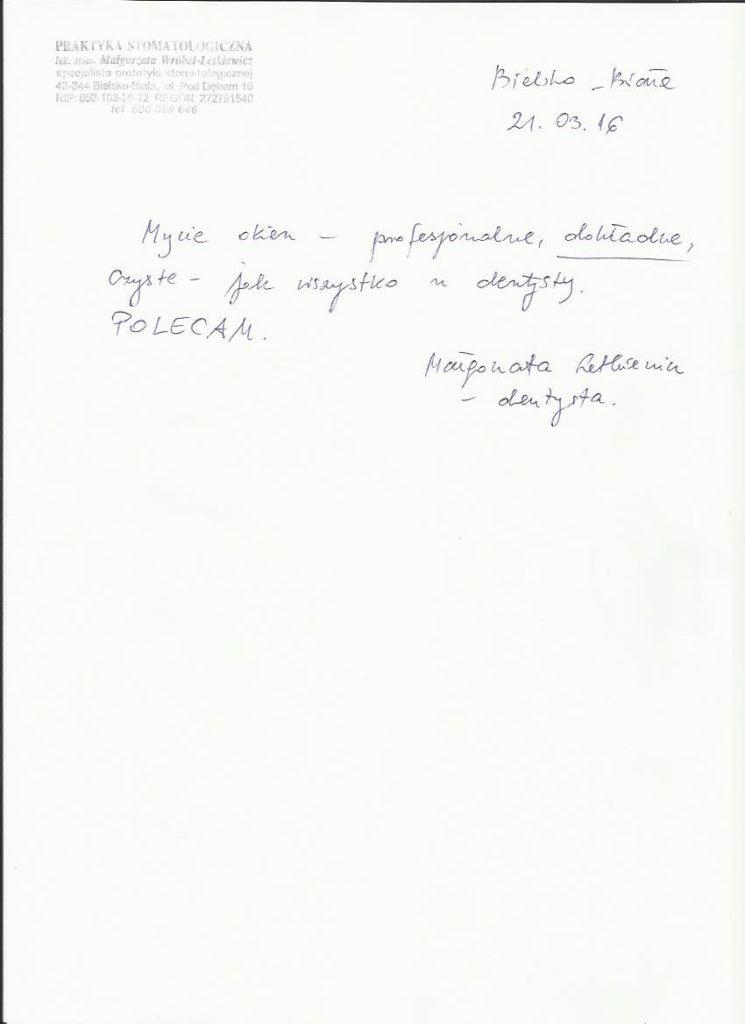 PRAKTYKA STOMATOLOGICZNA
lek. stom. Małgorzata Wróbel-Letkiewicz
specjalista protetyki stomatologicznej
43-344 Bielsko-Biała, ul. Pod Dębem 15
REGON: 272751540
tel. 600 059 646
Bielsko - Biała
21. 03. 16
Mycie okien - profesjonalne, dokładne,
czyste - jak wszystko u dentysty.
POLECAM.
Małgorzata Letkiewicz
- dentysta.